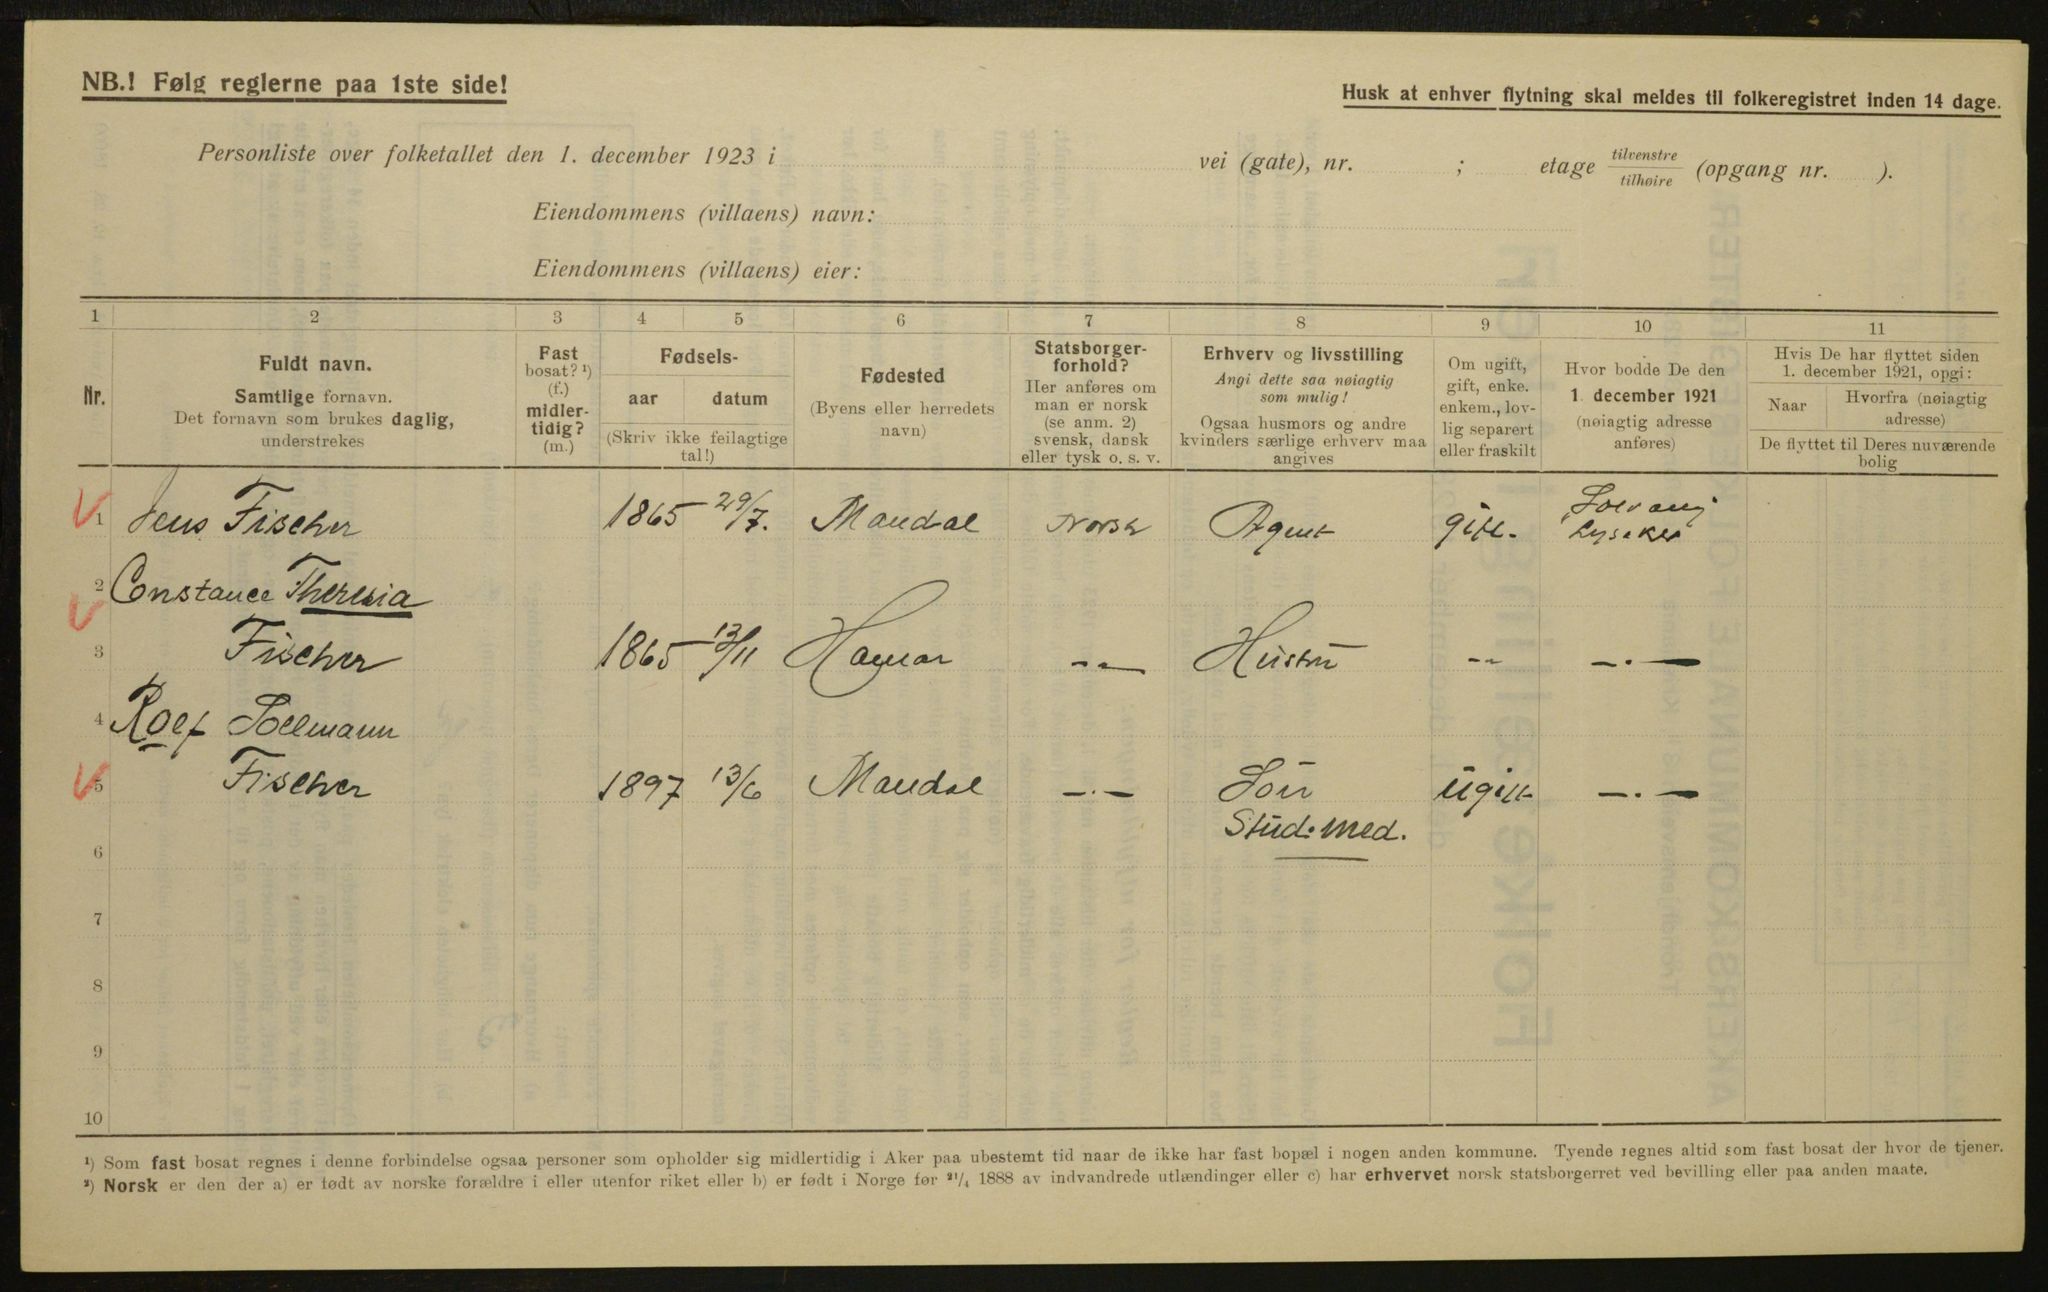 NB.! Følg reglerne paa 1ste side!
Husk at enhver flytning skal meldes til folkeregistret inden 14 dage.
Personliste over folketallet den 1. december 1923 i vei (gate), nr. ; etage tilvenstre/tilhøire (opgang nr. ).
Eiendommens (villaens) navn:
Eiendommens (villaens) eier:
1 2 3 4 5 6 7 8 9 10 11
Nr.
Fuldt navn.
Samtlige fornavn.
Det fornavn som brukes daglig,
understrekes
Fast
bosat? ¹)
(f.)
midler-
tidig?
(m.)
Fødsels-
aar datum
(Skriv ikke feilagtige
tal!)
Fødested
(Byens eller herredets
navn)
Statsborger-
forhold?
Her anføres om
man er norsk
(se anm. 2)
svensk, dansk
eller tysk o. s. v.
Erhverv og livsstilling
Angi dette saa nøiagtig
som mulig!
Ogsaa husmors og andre
kvinders særlige erhverv maa
angives
Om ugift,
gift, enke.
enkem., lov-
lig separert
eller fraskilt
Hvor bodde De den
1. december 1921
(nøiagtig adresse
anføres)
Hvis De har flyttet siden
1. december 1921, opgi:
Naar
Hvorfra (nøiagtig
adresse)
De flyttet til Deres nuværende
bolig
1 Jens Fischer 1865 29/7. Mandal Norsk Agent gift. Solvang
Lysaker
2 Constance Theresia
3 Fischer 1865 13/11 Hamar -"- Hustru -"- -"-
4 Rolf Sollmann
5 Fischer 1897 13/6 Mandal -"- Sön ugift -"-
Stud. med.
6
7
8
9
10
¹) Som fast bosat regnes i denne forbindelse ogsaa personer som opholder sig midlertidig i Aker paa ubestemt tid naar de ikke har fast bopæl i nogen anden kommune. Tyende regnes altid som fast bosat der hvor de tjener.
²) Norsk er den der a) er født av norske forældre i eller utenfor riket eller b) er født i Norge før ²¹/₄ 1888 av indvandrede utlændinger eller c) har erhvervet norsk statsborgerret ved bevilling eller paa anden maate.